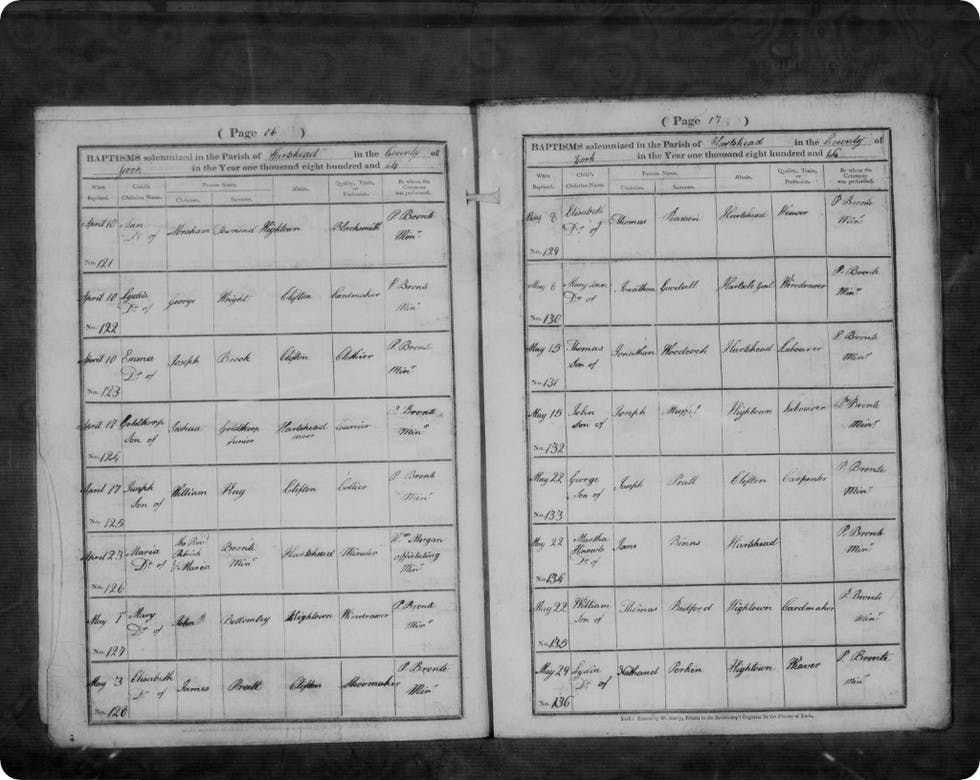 ( Page 16 )
BAPTISMS solemnized in the Parish of Hartshead in the County of
York in the Year one thousand eight hundred and 14
When Baptized. Child's Christian Name. Parents Name. Christian. Surname. Abode. Quality, Trade, or Profession. By whom the Ceremony was performed.
April 10 Ann Dr. of Abraham Townend Hightown Blacksmith P. Bronte Minr.
No. 121
April 10 Lydia Dr. of George Wright Clifton Cardmaker P. Bronte Minr.
No. 122
April 10 Emma Dr. of Joseph Brook Clifton Clothier P. Bronte Minr.
No. 123
April 17 Goldthorp Son of Joshua Goldthorp Junior Hartshead moor Currier P. Bronte Minr.
No. 124
April 17 Joseph Son of William Kay Clifton Collier P. Bronte Minr.
No. 125
April 23 Maria Dr. of The Revd. Patrick & Maria Bronte Minr. Hartshead Minister Wm. Morgan officiating Minr.
No. 126
May 1 Mary Dr. of John Bottomley Hightown Wiredrawer P. Bronte Minr.
No. 127
May 3 Elizabeth Dr. of James Pratt Clifton Shoemaker P. Bronte Minr.
No. 128
( Page 17 )
BAPTISMS solemnized in the Parish of Hartshead in the County of
York in the Year one thousand eight hundred and 14
When Baptized. Child's Christian Name. Parents Name. Christian. Surname. Abode. Quality, Trade, or Profession. By whom the Ceremony was performed.
May 8 Elizabeth Dr. of Thomas Pearson Hartshead Weaver P. Bronte Minr.
No. 129
May 8 Mary Ann Dr. of Jonathan Goodall Wiredrawer P. Bronte Minr.
No. 130
May 15 Thomas Son of Jonathan Woodcock Hartshead Labourer P. Bronte Minr.
No. 131
May 15 John Son of Joseph Hightown Labourer P. Bronte Minr.
No. 132
May 22 George Son of Joseph Pratt Clifton Carpenter P. Bronte Minr.
No. 133
May 22 Martha Dr. of Jane Binns Hartshead P. Bronte Minr.
No. 134
May 22 William Son of Thomas Bedford Hightown Cardmaker P. Bronte Minr.
No. 135
May 29 Lydia Dr. of Nathanel Perkin Hightown Weaver P. Bronte Minr.
No. 136